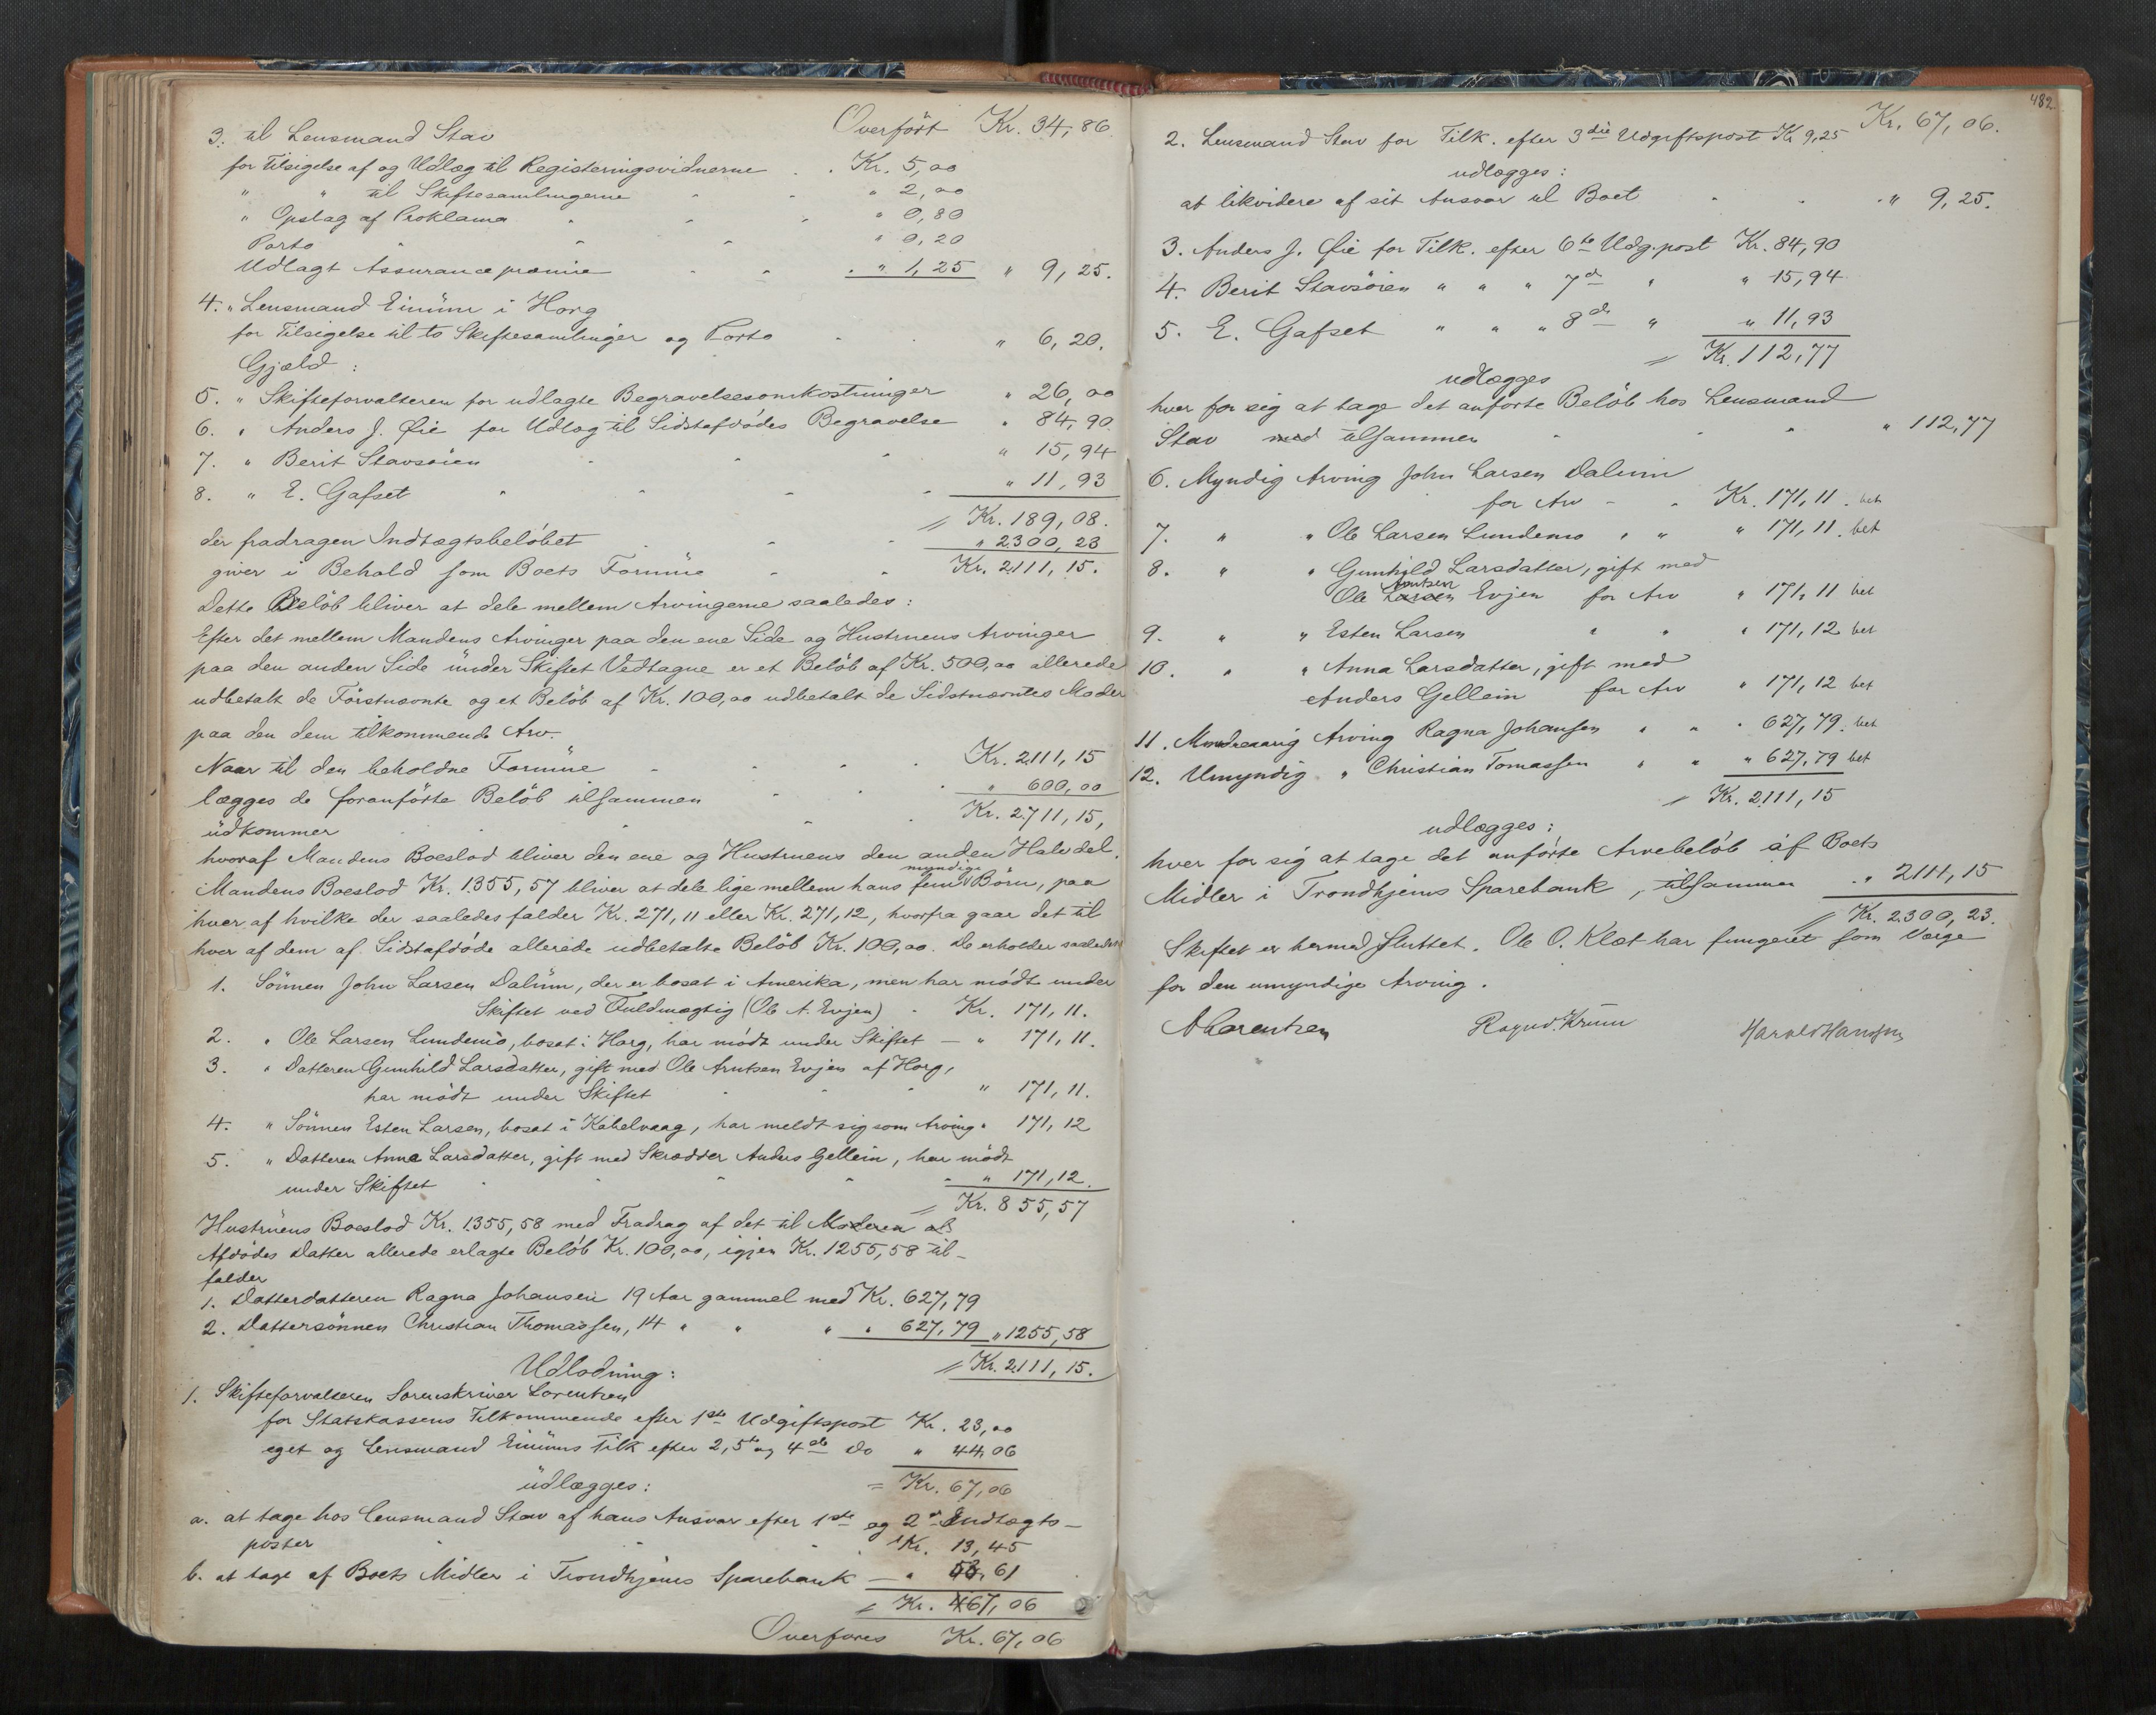 Overført Kr. 34,86.
3. til Lensmand Stav
for Tilsigelse af og Udlæg til Registeringsvidnerne . . Kr. 5,00
" " til Skiftesamlingerne " 2,00
" Opslag af Proklama " 0,80
Porto " 0,20
Udlagt Assurancepræmie " 1,25 " 9,25.
4. " Lensmand Einum i Horg
for Tilsigelse til to Skiftesamlinger og Porto " 6,20.
Gjæld :
5. " Skifteforvalteren for udlagte Begravelsesomkostninger " 26,00
6. " Anders J. Øie for Udlæg til Sidstafdødes Begravelse " 84,90
7. " Berit Stavsøien " 15,94
8. " E. Gafset " 11,93
= Kr. 189,08.
der fradragen Indtægtsbeløbet " 2300,23
giver i Behold som Boets Formue Kr. 2111,15.
Dette Beløb bliver at dele mellem Arvingerne saaledes :
Efter det mellem Mandens Arvinger paa den ene Side og Hustruens Arvinger
paa den anden Side under Skiftet Vedtagne er et Beløb af Kr. 500,00 allerede
udbetalt de Førstnævnte og et Beløb af Kr. 100,00 udbetalt de Sidstnævntes Moder
paa den dem tilkommende Arv.
Naar til den beholdne Formue Kr. 2111,15
lægges de foranførte Beløb tilsammen " 600,00
udkommer Kr. 2711,15,
hvoraf Mandens Boeslod bliver den ene og Hustruens den anden Halvdel.
Mandens Boeslod Kr. 1355,57 bliver at dele lige mellem hans fem myndige Børn, paa
hver af hvilke der saaledes falder Kr. 271,11 eller Kr. 271,12, hvorfra gaar det til
hver af dem af Sidstafdøde allerede udbetalte Beløb Kr. 100,00. De erholder saaledes
1. Sønnen John Larsen Dalum, der er bosat i Amerika, men har mødt under
Skiftet ved Fuldmægtig (Ole A. Evjen) - Kr. 171,11.
2. " Ole Larsen Lundemo, bosat i Horg, har mødt under Skiftet — " 171,11.
3. " Datteren Gunhild Larsdatter, gift med Ole Arntsen Evjen af Horg,
har mødt under Skiftet " 171,11.
4. " Sønnen Esten Larsen, bosat i Kabelvaag, har meldt sig som Arving " 171,12
5. " Datteren Anna Larsdatter, gift med Skrædder Anders Gellein, har mødt
under Skiftet " 171,12.
= Kr. 855,57
Hustruens Boeslod Kr. 1355,58 med Fradrag af det til Moderen als
Afdødes Datter allerede erlagte Beløb Kr. 100,00, igjen Kr. 1255,58 til-
falder
1. Datterdatteren Ragna Johansen 19 Aar gammel med Kr. 627,79
2. Dattersønnen Christian Thomassen, 14 " " " " 627,79 " 1255,58
= Kr. 2111,15.
Udlodning :
1. Skifteforvalteren Sorenskriver Lorentzen
for Statskassens Tilkommende efter 1ste Udgiftspost Kr. 23,00
eget og Lensmand Einums Tilk efter 2, 5te og 4de Do " 44,06
udlægges : = Kr. 67,06
a. at tage hos Lensmand Stav af hans Ansvar efter 1ste og 2den Indtægts-
poster Kr. 13,45
b. at tage af Boets Midler i Trondhjems Sparebank — " 53,61
= Kr. 67,06
Overføres Kr. 67,06
482
Kr. 67,06.
2. Lensmand Stav for Tilk. efter 3die Udgiftspost Kr 9,25
udlægges :
at likvidere af sit Ansvar til Boet " 9,25.
3. Anders J. Øie for Tilk. efter 6te Udg.post Kr. 84,90
4. Berit Stavsøien " " " 7de " " 15,94
5. E. Gafset " " " 8de " " 11,93
= Kr. 112,77
udlægges
hver for sig at tage det anførte Beløb hos Lensmand
Stav med tilsammen " 112,77
6. Myndig Arving John Larsen Dalum
for Arv - - Kr. 171,11. bet
7. " " Ole Larsen Lundemo " " " 171,11. bet
8. " " Gunhild Larsdatter, gift med
Arntsen
Ole Larsen Evjen for Arv " 171,11 bet
9. " " Esten Larsen " " " 171,12 bet
10. " " Anna Larsdatter, gift med
Anders Gellein for Arv " 171,12 bet
11. Mindreaarig Arving Ragna Johansen " " " 627,79. bet
12. Umyndig " Christian Tomassen " " " 627,79 bet
= Kr. 2111,15
udlægges :
hver for sig at tage det anførte Arvebeløb af Boets
Midler i Trondhjems Sparebank, tilsammen " 2111,15
= Kr. 2300,23.
Skiftet er hermed sluttet. Ole O. Klæt har fungeret som Værge
for den umyndige Arving.
A Lorentzen Ragnv. Krum Harald Hansen